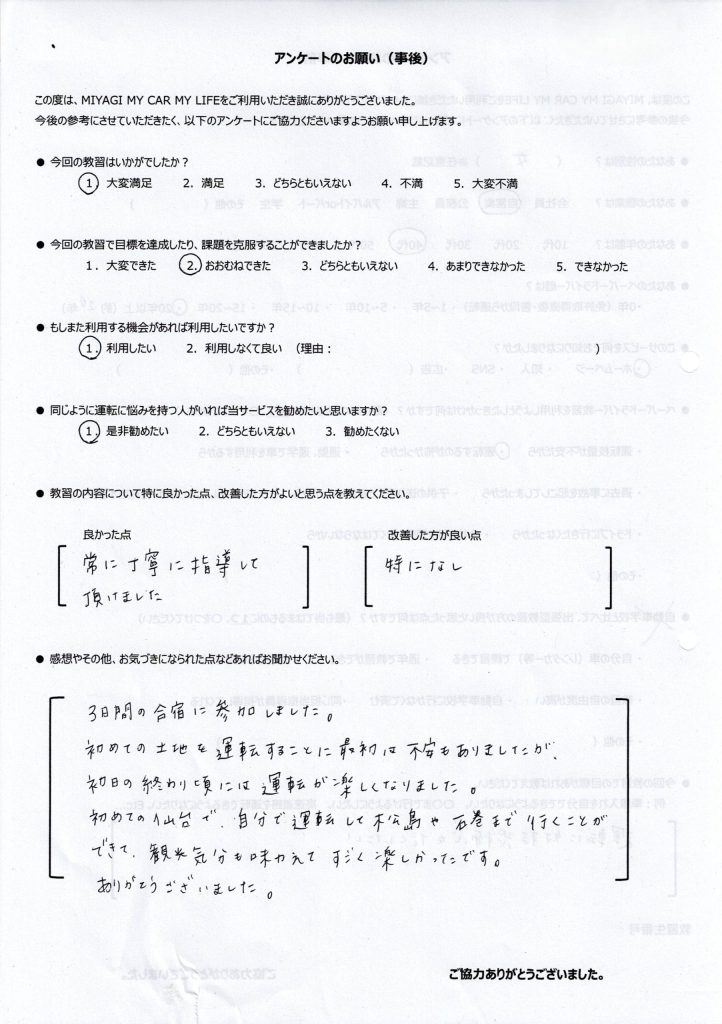 アンケートのお願い（事後）
この度は、MIYAGI MY CAR MY LIFEをご利用いただき誠にありがとうございました。
今後の参考にさせていただきたく、以下のアンケートにご協力くださいますようお願い申し上げます。
● 今回の教習はいかがでしたか？
1. 大変満足 2. 満足 3. どちらともいえない 4. 不満 5. 大変不満
● 今回の教習で目標を達成したり、課題を克服することができましたか？
1. 大変できた 2. おおむねできた 3. どちらともいえない 4. あまりできなかった 5. できなかった
● もしまた利用する機会があれば利用したいですか？
1. 利用したい 2. 利用しなくて良い （理由： ）
● 同じように運転に悩みを持つ人がいれば当サービスを勧めたいと思いますか？
1. 是非勧めたい 2. どちらともいえない 3. 勧めたくない
● 教習の内容について特に良かった点、改善した方がよいと思う点を教えてください。
良かった点
常に丁寧に指導して
頂けました
改善した方が良い点
特になし
● 感想やその他、お気づきになられた点などあればお聞かせください。
3日間の合宿に参加しました。
初めての土地を運転することに最初は不安もありましたが、
初日の終わり頃には運転が楽しくなりました。
初めての仙台で、自分で運転して松島や石巻まで行くことが
できて、観光気分も味わえてすごく楽しかったです。
ありがとうございました。
ご協力ありがとうございました。